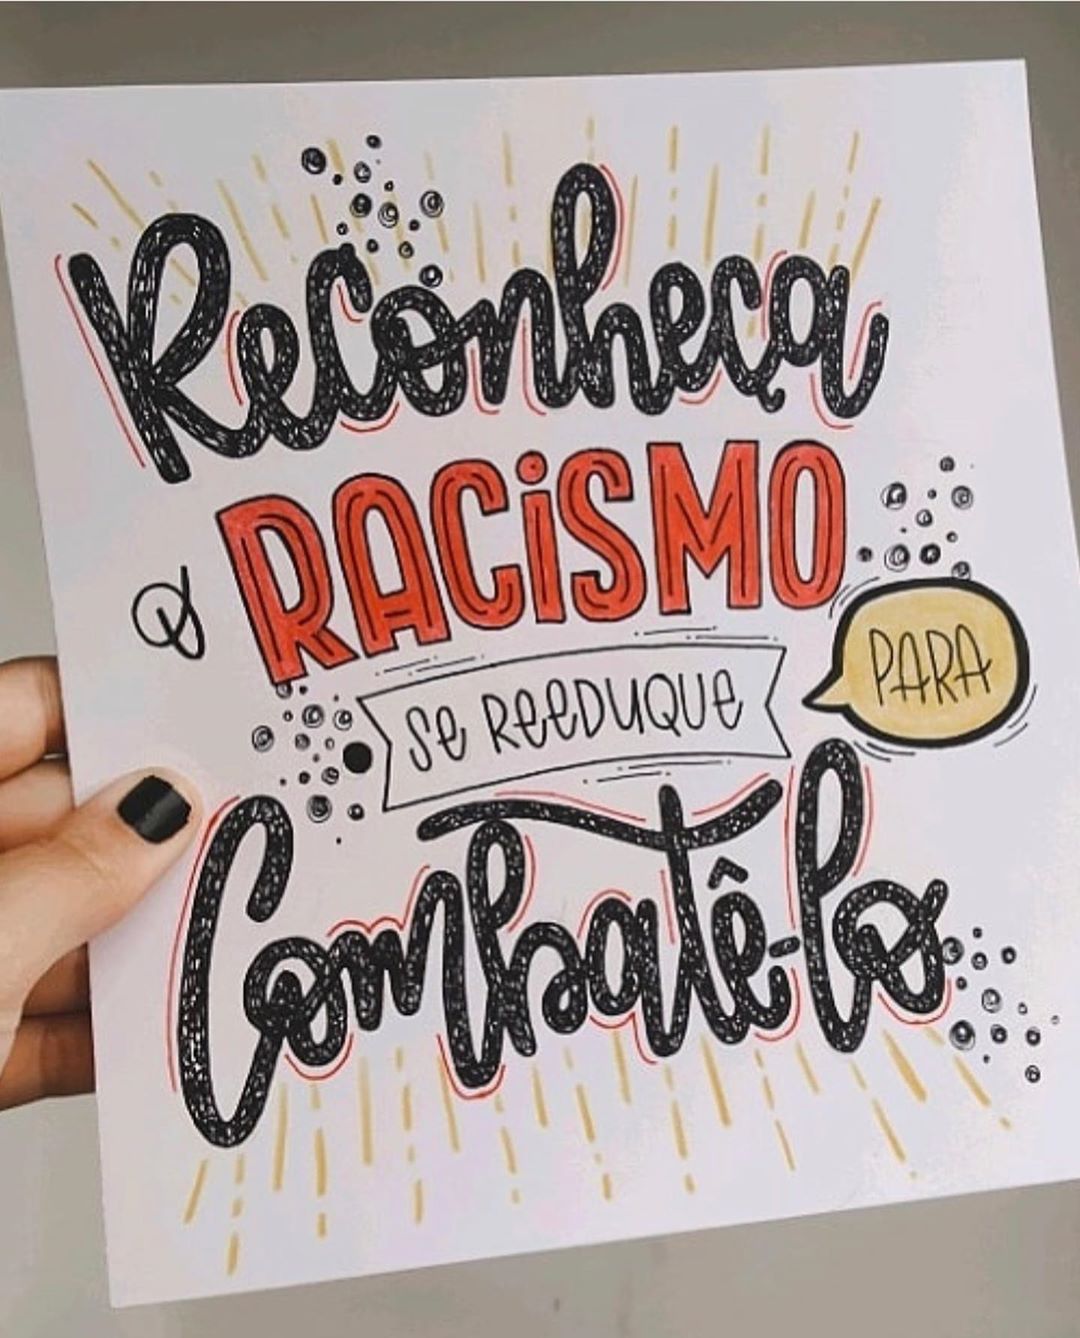 Reconheça
o RACiSMO
Se ReeDUQUe PARA
Combatê-lo